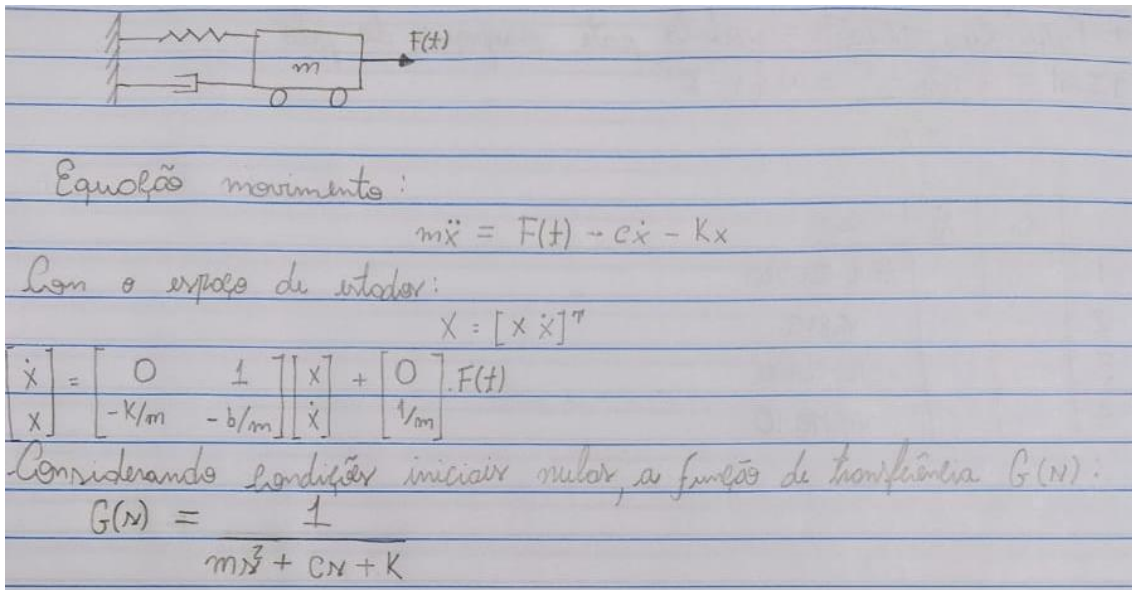 F(t)
m
Equação movimento:
mẍ = F(t) - cẋ - Kx
Com o espaço de estados:
X = [x ẋ]ᵀ
[ẋ x] = [0 1 -K/m -b/m] [x ẋ] + [0 1/m] . F(t)
Considerando condições iniciais nulas, a função de transferência G(s):
G(s) = 1
ms² + cs + K